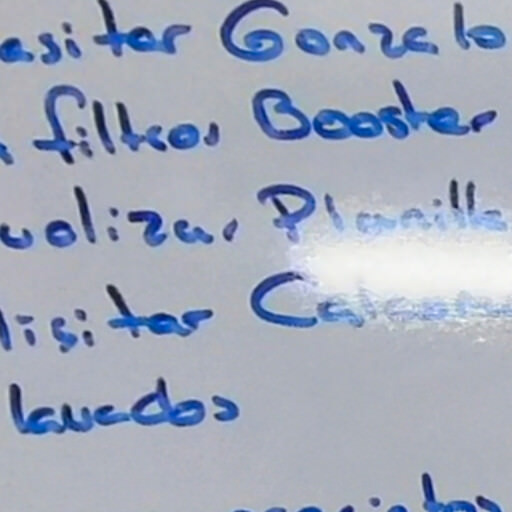 asitar Gonzalo
filtros Booster
ualizar Planilla
isitar
lavados